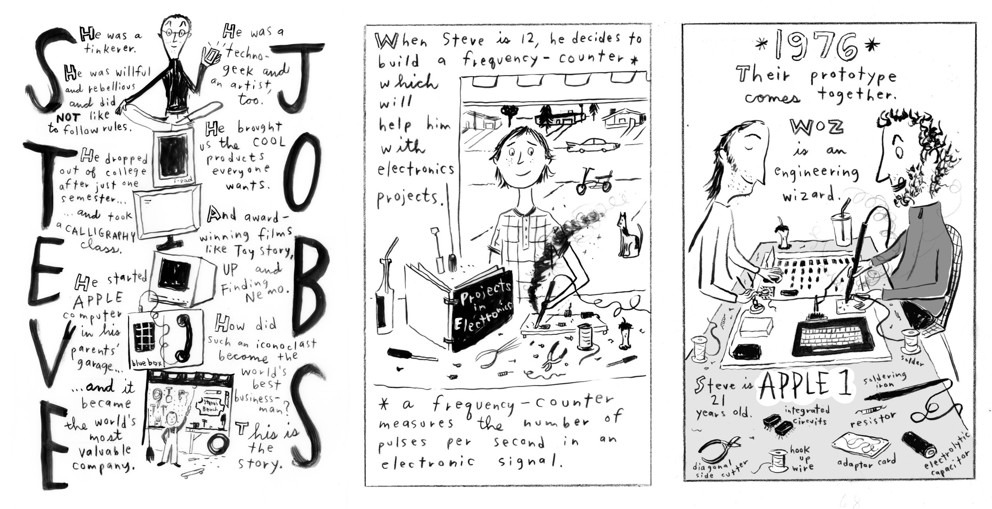 STEVE
JOBS
He was a
tinkerer.
He was a
techno-
geek and
an artist,
too.
He was willful
and rebellious
and did
NOT like
to follow rules.
He brought
us the COOL
products
everyone
wants.
He dropped
out of college
after just one
semester...
...and took
a CALLIGRAPHY
class.
And award-
winning films
like Toy Story,
UP and
Finding
Nemo.
He started
APPLE
computer
in his
parents'
garage...
blue box
How did
such an iconoclast
become the
world's
best
business-
man?
...and it
became
the world's
most
valuable
company.
This is
the
story.
When Steve is 12, he decides to
build a frequency-counter*
which
will
help him
with
electronics
projects.
Projects
in
Electronics
* a frequency-counter
measures the number of
pulses per second in an
electronic signal.
*1976*
Their prototype
comes together.
WOZ
is an
engineering
wizard.
Steve is
21
years old.
APPLE 1
solder
soldering
iron
integrated
circuits
resistor
diagonal
side cutter
hook
up
wire
adaptor card
electrolytic
capacitor